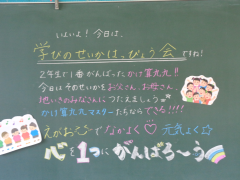 いよいよ！今日は、
学びのせいかはっぴょう会ですね！
2年生で1番がんばったかけ算九九!!
今日はそのせいかをお父さん、お母さん、
地いきのみなさんにつたえましょう。
かけ算九九マスターたちならできる!!!!
えがおでなかよく♡元気よく☆
心を1つにがんばろ〜う